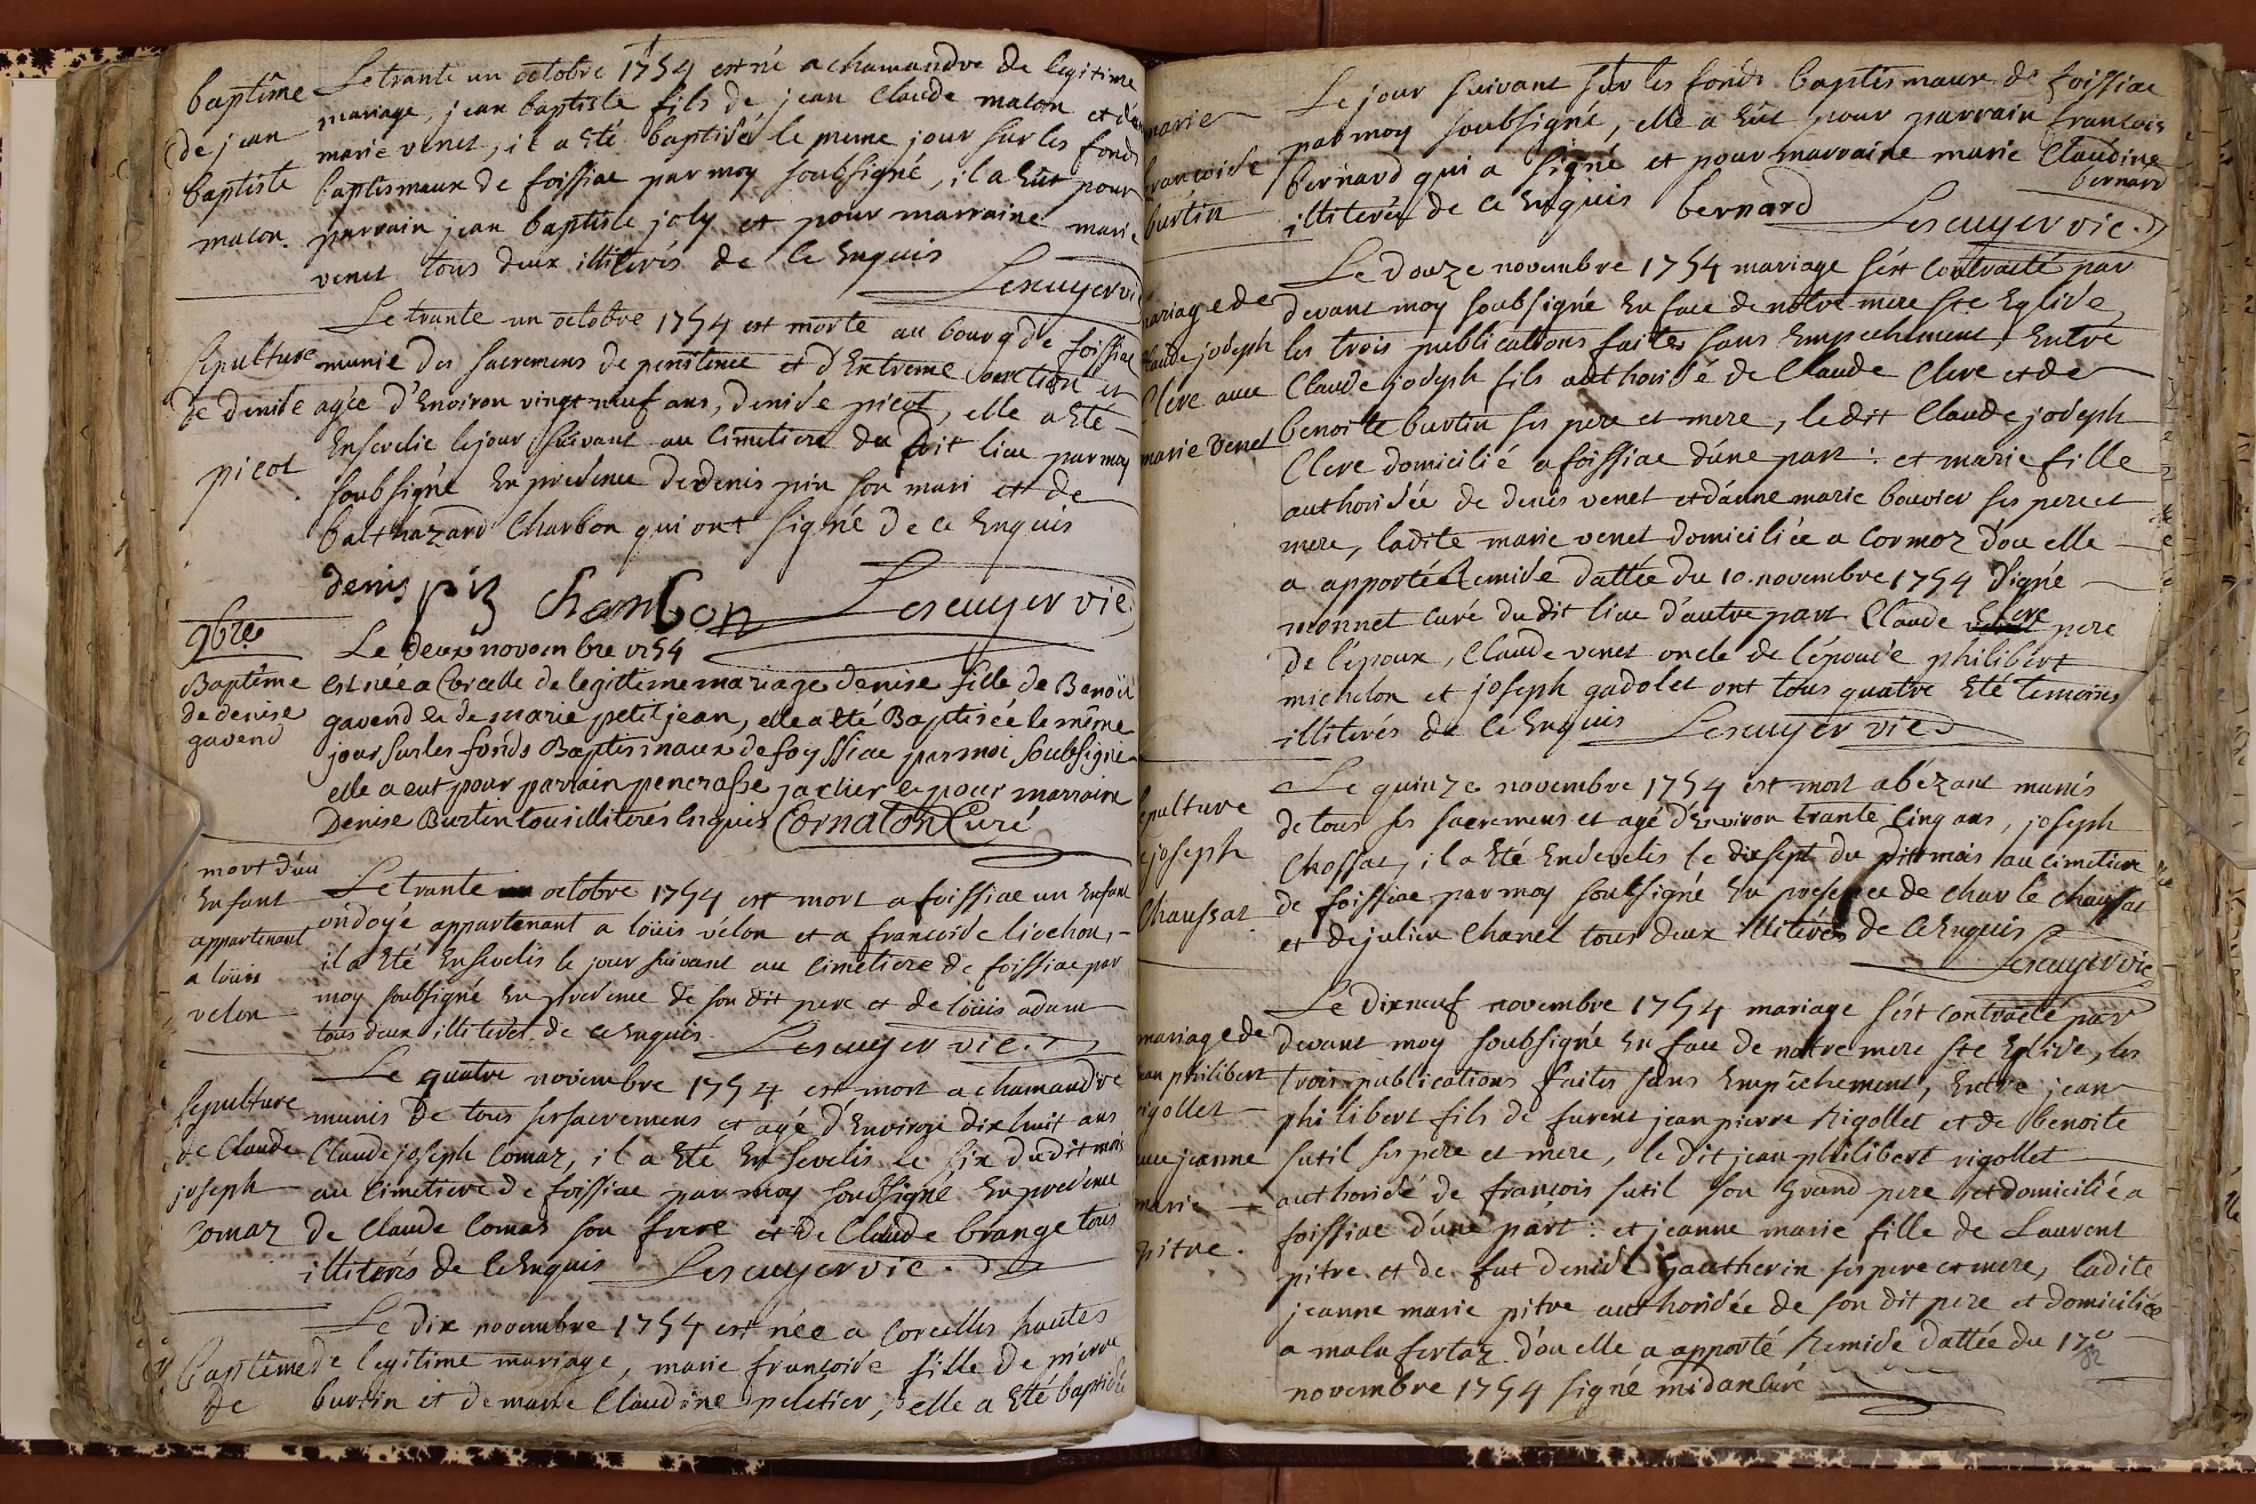 baptême
de jean
baptiste
maton.
Le trante un octobre 1754 est né a chamandre de legitime
mariage, jean baptiste fils de jean Claude maton et d'
marie venet, il a Eté baptisé le meme jour sur les fonds
baptismaux de foissiac par moy soubsigné, il a Eût pour
parrain jean baptiste joly et pour marraine marie
venet tous deux illiterés de ce Enquis
Lescuyer vic
Sepulture
de denise
picot
Le trante un octobre 1754 est morte au bourg de foissiac
munie des sacremens de penitence et d'Extreme onction et
agée d'Environ vingt neuf ans, denise picot, elle a Eté
Ensevelie le jour suivant au Cimetiere du dit lieu par moy
soubsigné En presence de denis pin son mari et de
balthazard Charbon qui ont signé de ce Enquis
denis pin Chambon Lescuyer vic.
9bre
Baptême
de denise
gavend
Le deux novembre 1754
est née a Corcelle de legittime mariage denise fille de Benoit
gavend et de marie petitjean, elle a été Baptisée le même
jour sur les fonds Baptismaux de foyssiac par moi soubsigné
elle a eut pour parrain pencrasse jaclier et pour marraine
Denise Burtin tous illiterés Enquis Cornaton Curé
mort d'un
Enfant
appartenant
a loüis
velon
Le trante octobre 1754 est mort a foissiac un Enfant
ondoyé appartenant a loüis vélon et a francoise liochon,
il a Eté Ensevelis le jour suivant au Cimetiere de foissiac par
moy soubsigné En presence de son dit pere et de loüis adam
tous deux illiterés de ce Enquis Lescuyer vic.
Sepulture
de Claude
joseph
Comaz
Le quatre novembre 1754 est mort a chamandre
munis de tous ses sacremens et agé d'Environ dix huit ans
Claude joseph Comaz, il a Eté Ensevelis le six du dit mois
au Cimetiere de foissiac par moy soubsigné En presence
de Claude Comas son frere et de Claude brange tous
illiterés de ce Enquis Lescuyer vic.
Baptême
de
Le dix novembre 1754 est née a Corcelles hautes
de legitime mariage, marie francoise fille de pierre
burtin et de marie Claudine peletier, elle a Eté baptisée
marie
francoise
burtin
Le jour suivant sur les fonds baptismaux de foissiac
par moy soubsigné, elle a Eût pour parrain francois
bernard qui a signé et pour marraine marie Claudine
bernard
illiterée de ce Enquis bernard Lescuyer vic.
mariage de
Claude joseph
Clere avec
marie venet
Le douze novembre 1754 mariage s'est Contracté par
devant moy soubsigné En face de nôtre mere ste Eglise,
les trois publications faites sans Empechement, Entre
Claude joseph fils authorisé de Claude Clere et de
benoite burtin ses pere et mere, le dit Claude joseph
Clere domicilié a foissiac d'une part : et marie fille
authorisée de denis venet et d'anne marie bouvier ses pere et
mere, ladite marie venet domiciliée a Cormoz d'ou elle
a apporté Remise dattée du 10. novembre 1754 signé
monnet curé du dit lieu d'autre part Claude Clere pere
de l'époux, Claude venet oncle de l'épouse philibert
michelon et joseph gadolet ont tous quatre Eté temoins
illiterés de ce Enquis Lescuyer vic.
Sepulture
de joseph
Chaussat
Le quinze novembre 1754 est mort a bézant munis
de tous ses sacremens et agé d'Environ trante Cinq ans, joseph
Chossat, il a Eté Ensevelis le dix sept du dit mois au Cimetiere
de foissiac par moy soubsigné En presence de Charle Chaussat
et de julien Chanel tous deux illiterés de ce Enquis
Lescuyer vic
mariage de
jean philibert
rigollet
avec jeanne
marie
pitre.
Le dix neuf novembre 1754 mariage s'est Contracté par
devant moy soubsigné En face de nôtre mere ste Eglise, les
trois publications faites sans Empechement, Entre jean
philibert fils de furent jean pierre Rigollet et de benoite
sutil ses pere et mere, le dit jean philibert rigollet
authorisé de francois sutil son Grand pere et domicilié a
foissiac d'une part : et jeanne marie fille de Laurent
pitre et de fut denise Gautherin ses pere et mere, ladite
jeanne marie pitre authorisée de son dit pere et domiciliée
a malafertaz d'ou elle a apporté Remise dattée du 17e
novembre 1754 signé midan Curé